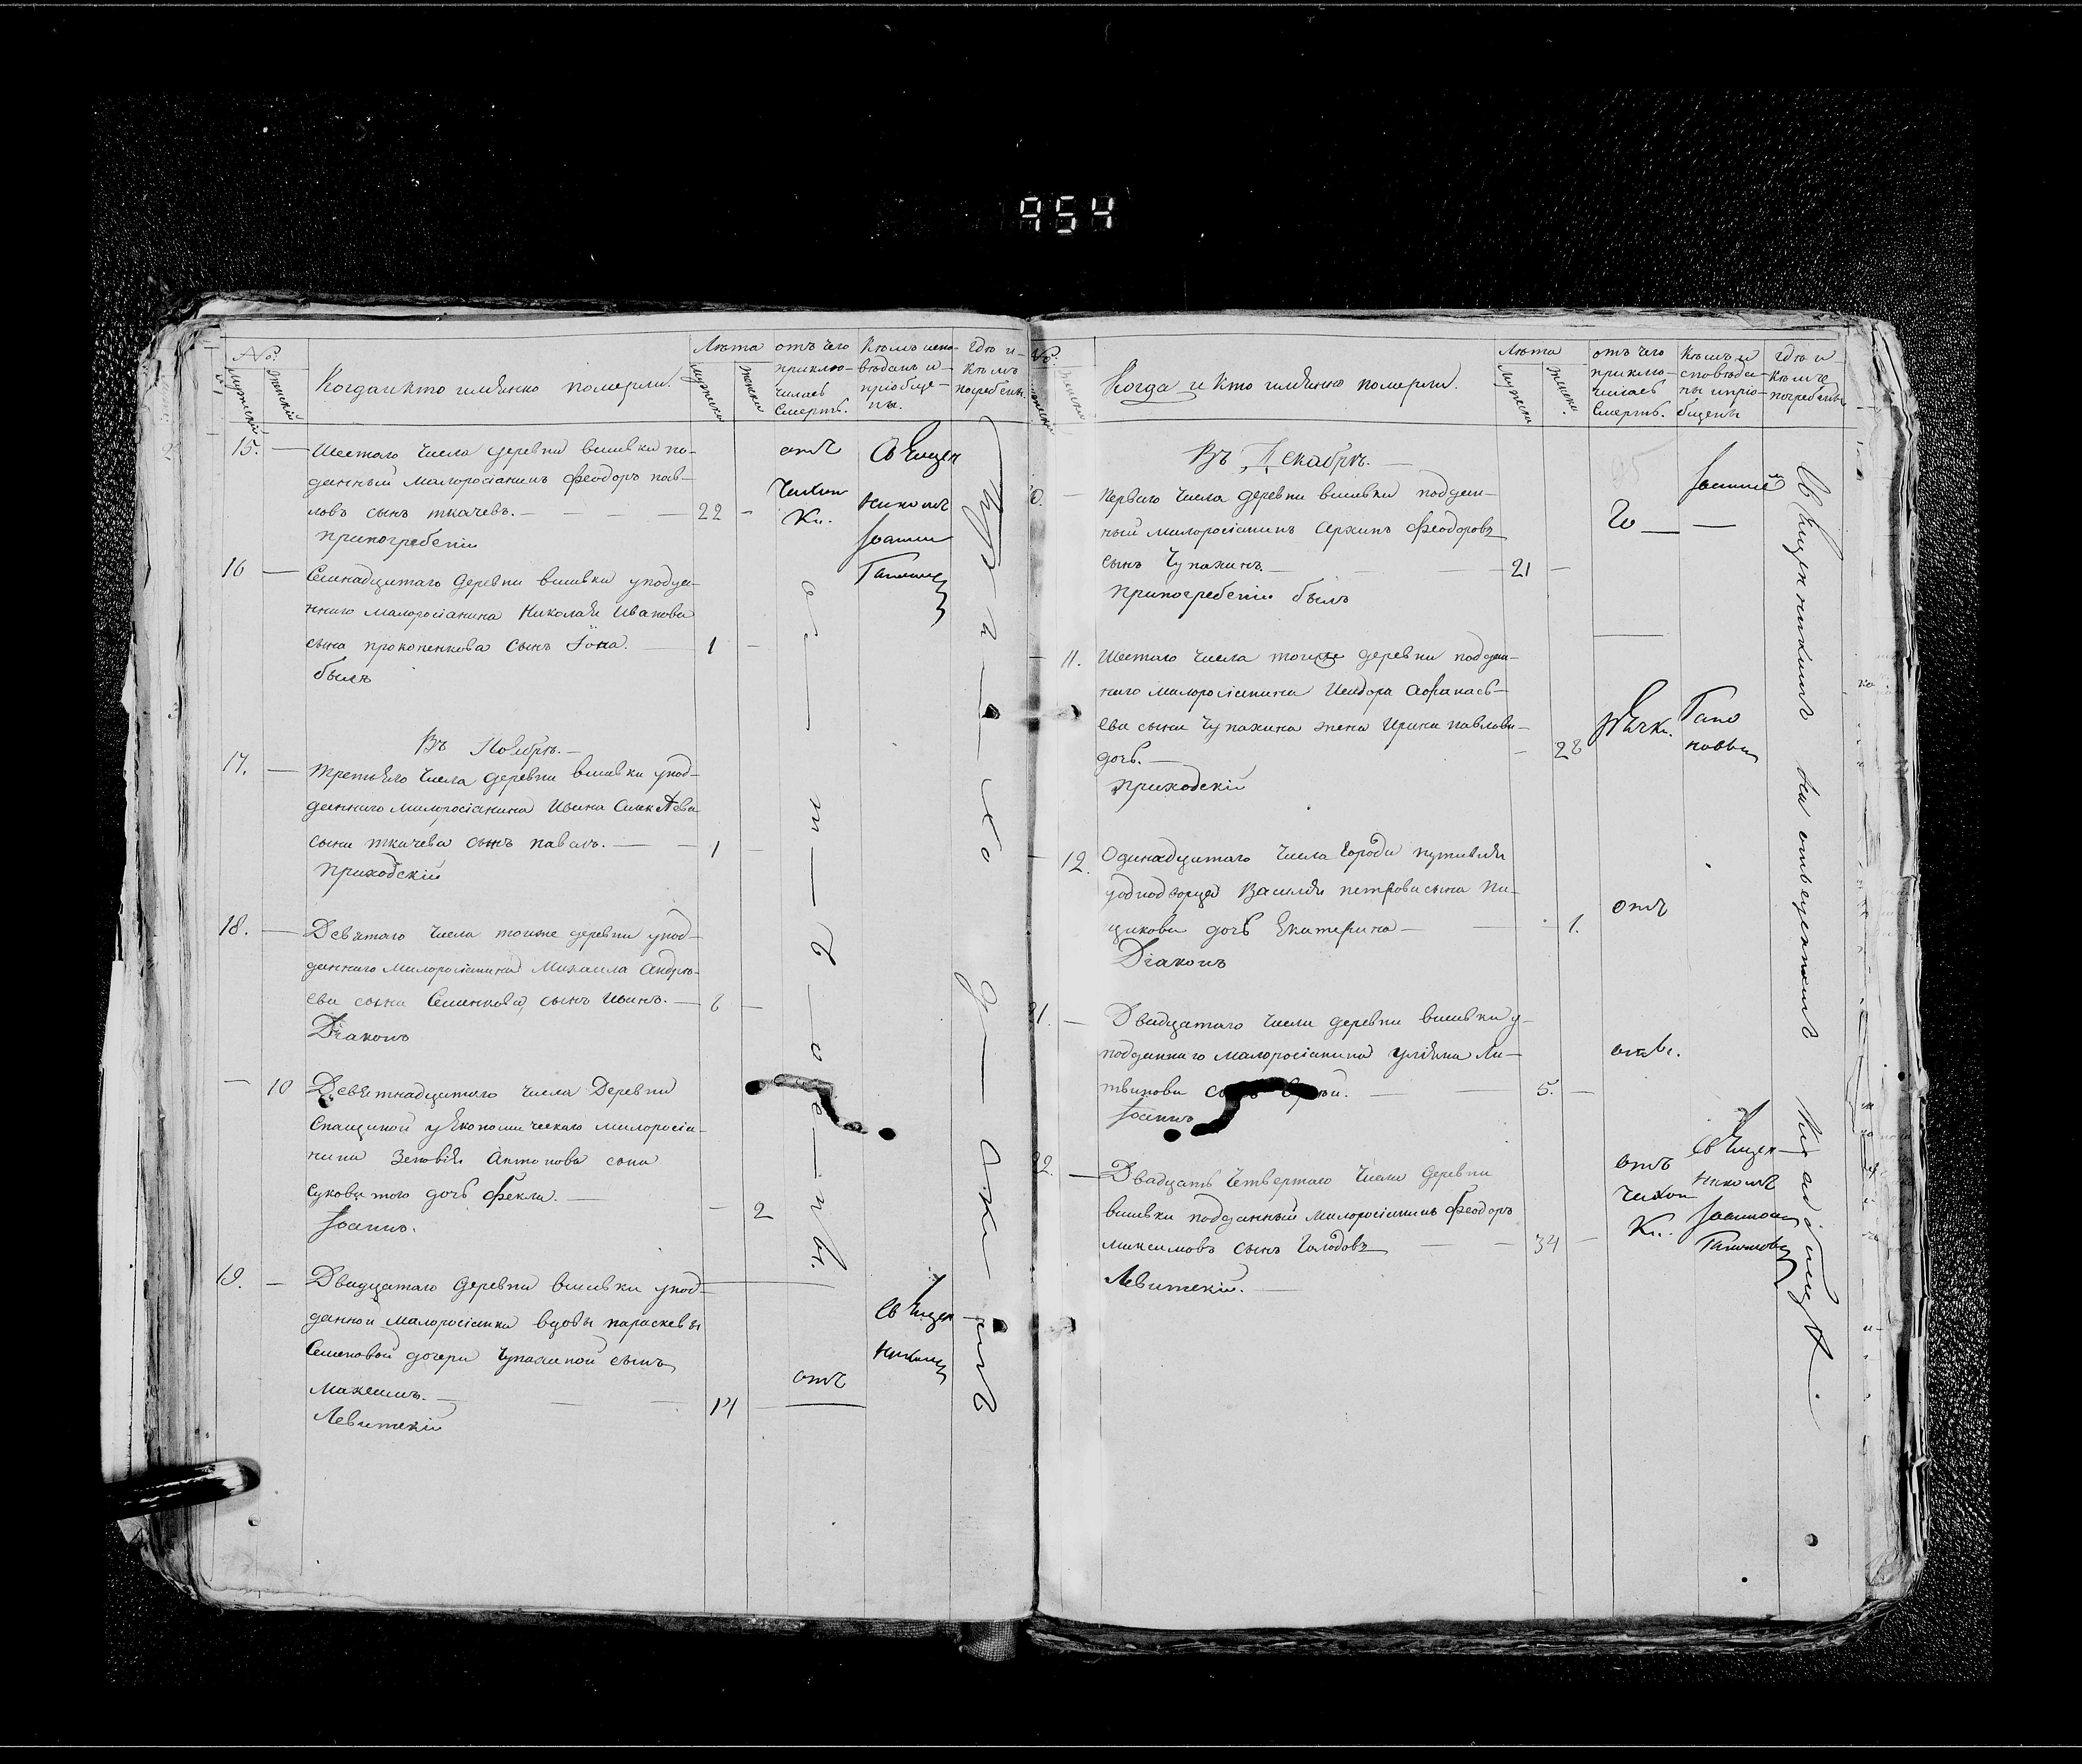 954
№:
Мужескій
Женскій
Когда и кто имѣнно померли.
Лѣта
Мужеска
Женска
отъ чего
приклю-
чилась
смерть.
Кѣмъ испо-
вѣданъ и
пріобще-
ны.
Гдѣ и
кѣмъ
погребены.
15. —
Шестаго числа деревни вшивки по-
данный малоросіанинъ Феодоръ пав-
ловъ сынъ ткачевъ. — 22 —
отъ
чихот
Ки.
Священ
никомъ
Іоанно
Гапоно
припогребеніи
16 —
Семнадцатаго деревни вшивки уподда-
ннаго малоросіанина Николая Иванова
сына прокопенкова сынъ Іона. — 1 —
былъ
Въ Ноябрѣ. —
17. —
третьяго числа деревни вшивки упод-
даннаго малоросіанина Ивана Алексѣева
сына ткачева сынъ павелъ. — 1 —
приходскій
18. —
Девятаго числа тоиже деревни упод-
даннаго малоросіанина Михаила Андрѣ-
ева сына Семенкова сынъ Иванъ. — 6 —
Діаконъ
— 10
Девятнадцатаго числа Деревни
Спащиной у Економическаго малоросіа-
нина Зеновія Антонова сына
суковитого дочь Фекла. — 2
Іоаннъ.
19. —
Двадцатаго деревни вшивки упод-
данной малоросіанки вдовы параскевы
Семеновой дочери Чупахиной сынъ
Максимъ. — 14 —
отъ
Священ
никомъ
Левитскій
№:
Женскій
Когда и кто имѣнно померли.
Лѣта
Мужеска
Женска.
отъ чего
приклю-
чилась
смерть.
Кѣмъ и
сповѣда-
ны и пріо-
бщены
Гдѣ и
кѣмъ
погребены
Въ Декабрѣ. —
перваго числа деревни вшивки поддан-
ный малоросіанинъ Архипъ Феодоровъ
сынъ Чупахинъ. — 21 —
припогребеніи былъ
— 11.
Шестаго числа тоиже деревни поддан-
наго малоросіанина Исидора Афанась-
ева сына Чупахина жена Ирина павлова
дочь. — 28
приходскій
— 12.
Одинадцатаго числа города путивля
уоднодворца Василія петрова сына Пи-
щикова дочь Екатерина — 1.
отъ
Діаконъ
21. —
Двадцатаго числа деревни вшивки у-
подданнаго малоросіанина уліяна Ли-
твинова 5. —
Іоаннъ
22. —
Двадцать четвертаго числа деревни
вшивки подданный малоросіанинъ Феодоръ
максимовъ сынъ Голодовъ — 34 —
отъ
чихот
Ки.
Священ
никомъ
Іоанном
Гапоновым
Левитскій. —
на отведенномъ
кладбищѣ.